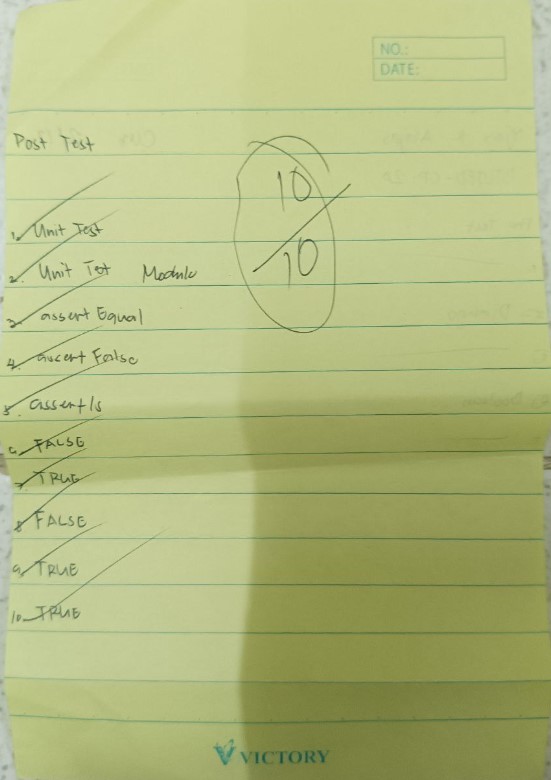 NO.:
DATE:
Post Test
10
10
1. Unit Test
2. Unit Tet Module
3. assert Equal
4. assert False
5. assertIs
6. FALSE
7. TRUE
8. FALSE
9. TRUE
10. TRUE
VICTORY